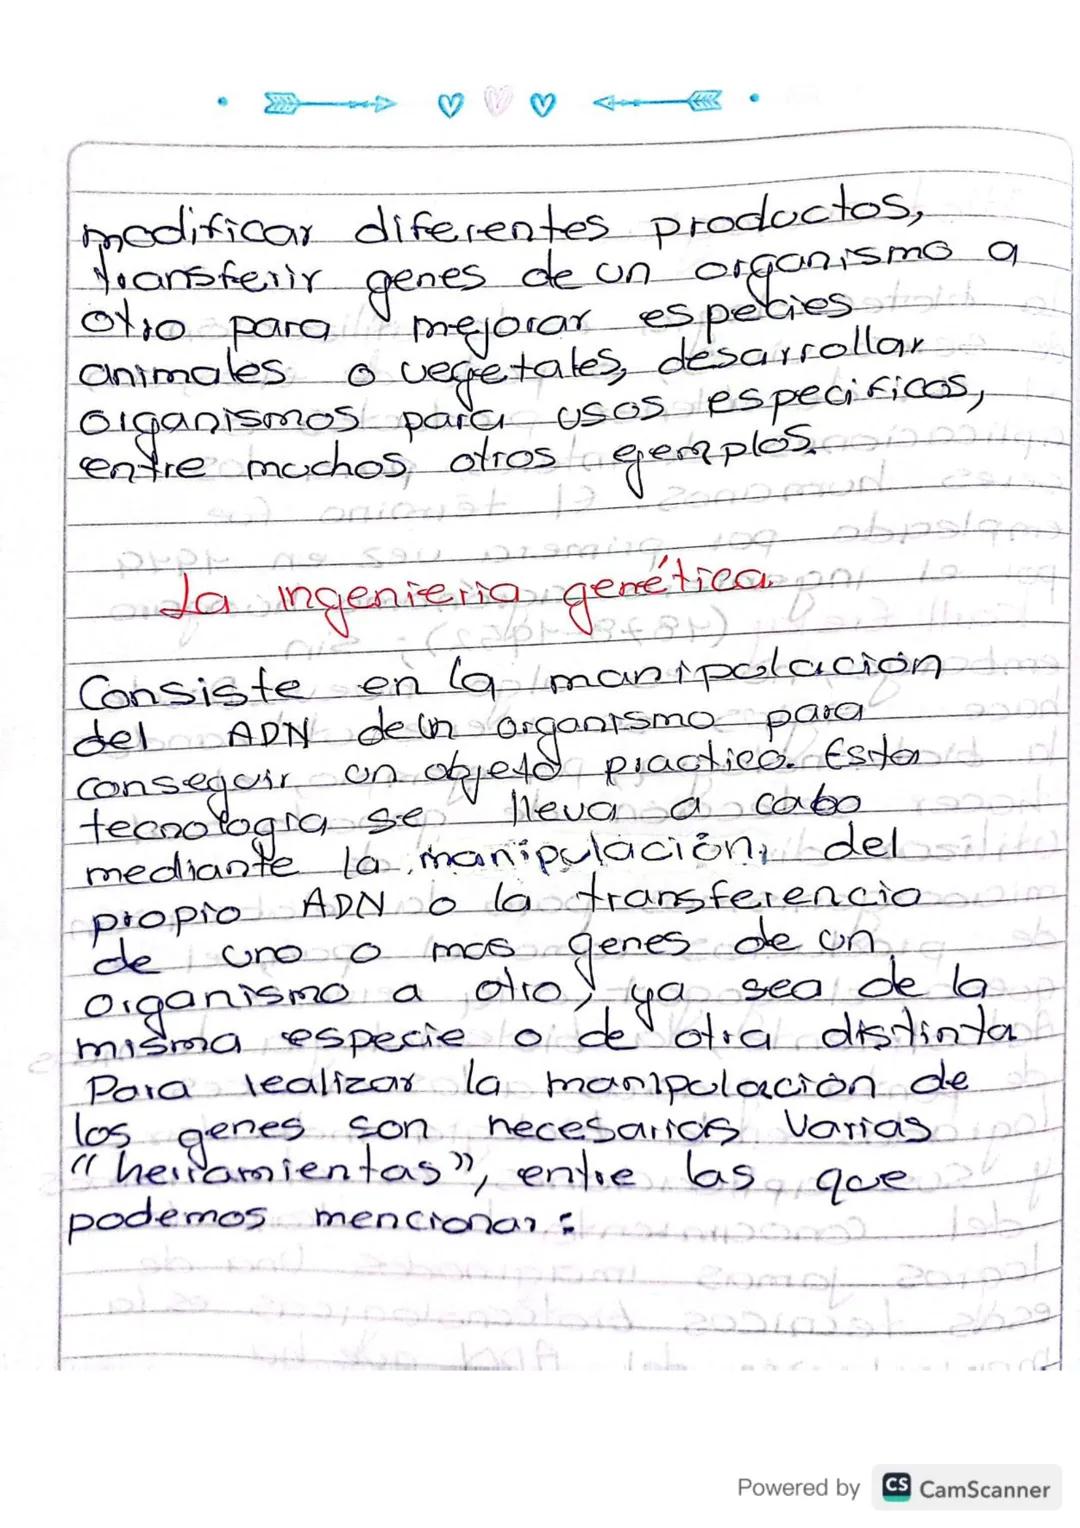 modificar diferentes productos,
transferir genes de un organismo a
otro para mejorar especies
animales o vegetales, desarrollar
organismos para usos especificos,
entre muchos otros ejemplos.
La ingenieria genética
Consiste en la manipulación
del ADN de un organismo para
conseguir un objeto practico. Esta
tecnologia se lleva a cabo
mediante la manipulación, del
propio ADN o la transferencia
de uno o mas genes de un
organismo a otro, ya sea de la
misma especie o de otra distinta
Para realizar la manipulación de
los genes son necesarios varias
"herramientas", entre las que
podemos mencionar:
Powered by CS CamScanner